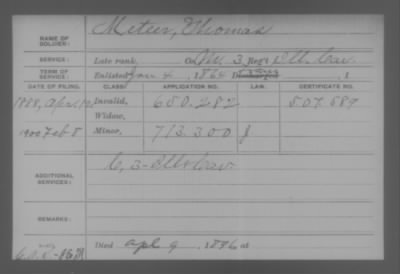 NAME OF SOLDIER: Meteer, Thomas
SERVICE: Late rank, Co. M. 3 Reg't Ills Cav.
TERM OF SERVICE: Enlisted Jan 4, 1864 Discharged , 1
DATE OF FILING. CLASS. APPLICATION NO. LAW. CERTIFICATE NO.
1888, Apr. 12 Invalid, 650.282 507.589
Widow,
1900 Feb 8 Minor, 713.300 J
ADDITIONAL SERVICES: C, 3 Ills Cav.
REMARKS:
Died Apl 9, 1896 at